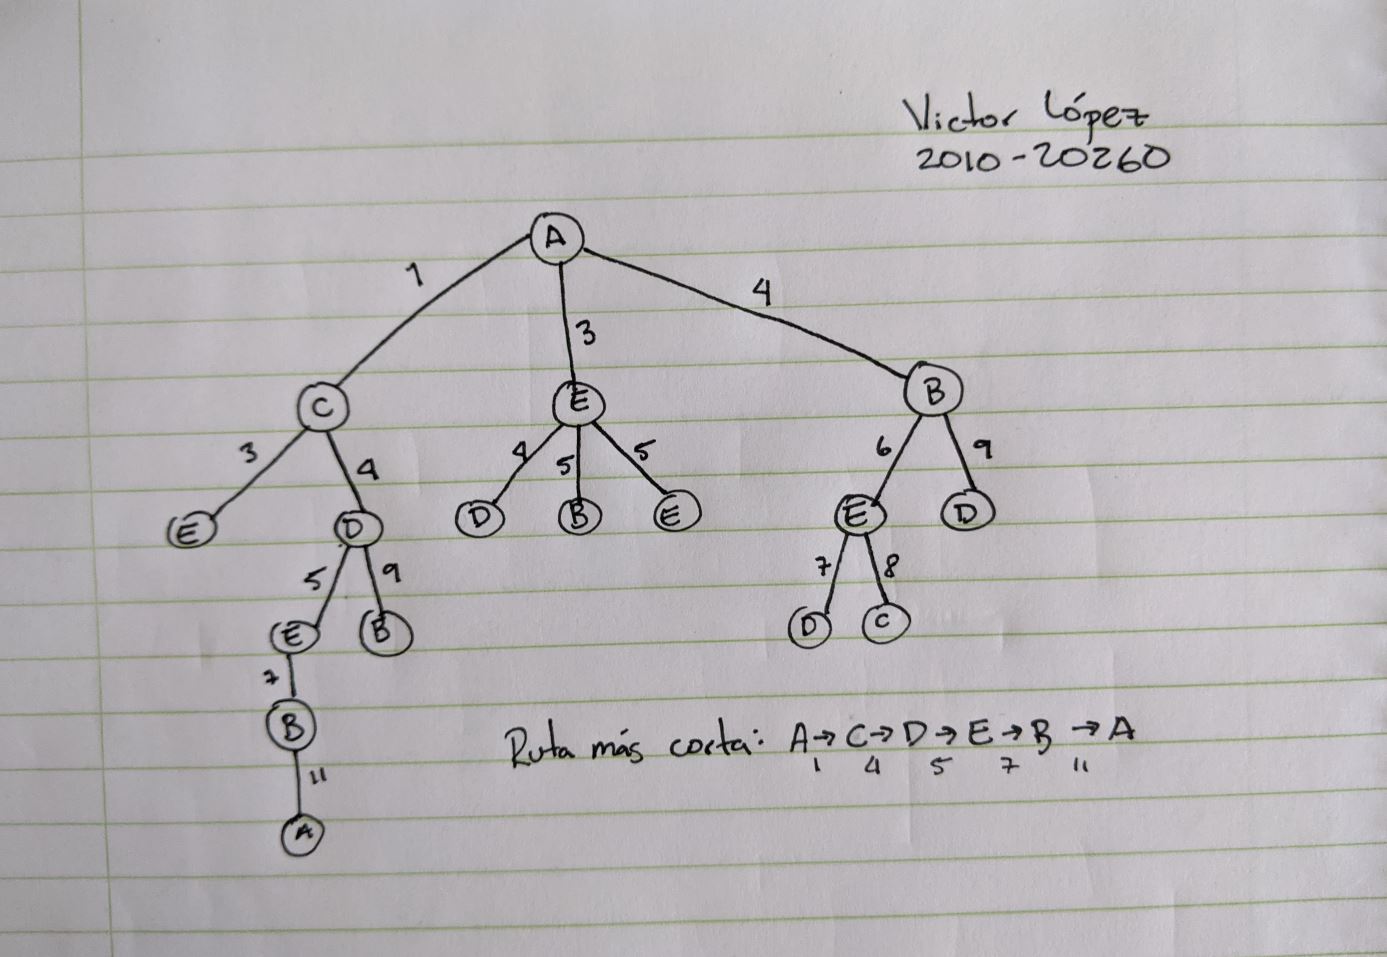 Victor López
2010-20260
A
1
3
4
C
E
B
3
4
4
5
5
6
9
E
D
D
B
E
E
D
5
9
7
8
E
B
D
C
7
B
Ruta más corta: A→C→D→E→B→A
1 4 5 7 11
11
A